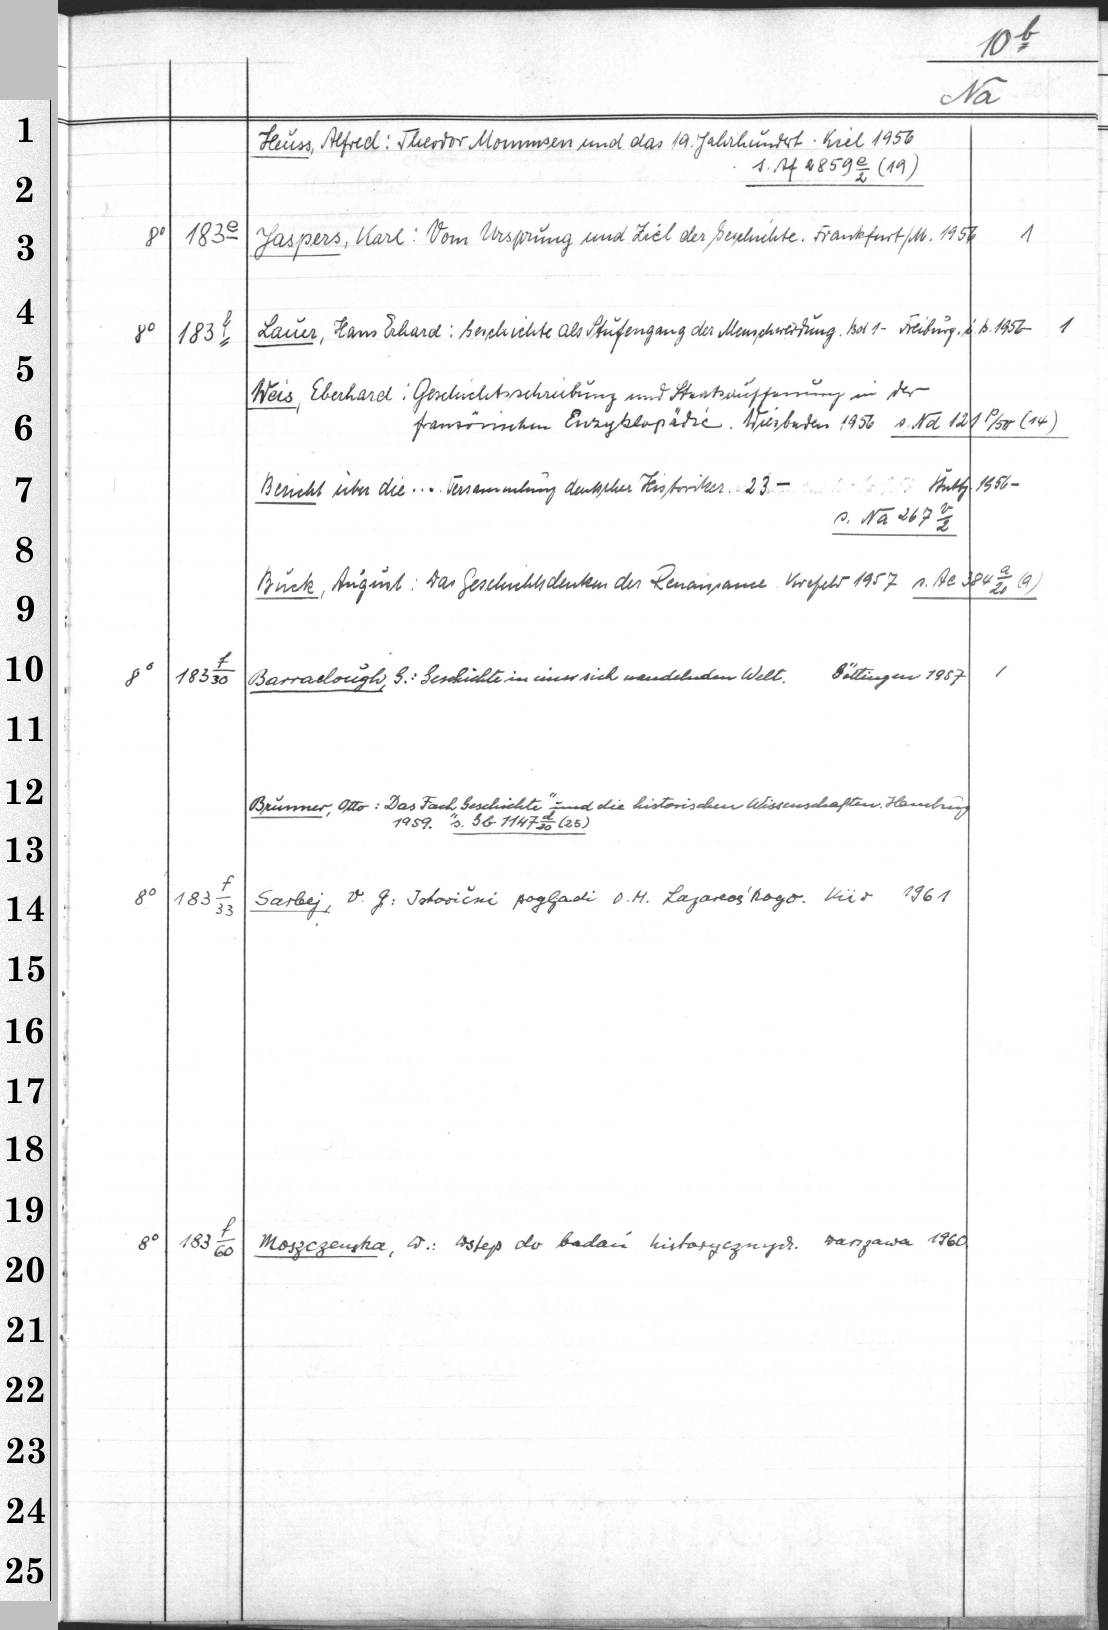 10 b
Na
1
Heuss, Alfred: Theodor Mommsen und das 19. Jahrhundert. Kiel 1956
2
s. Af 2859 e/2 (19)
3
8° 183 e Jaspers, Karl: Vom Ursprung und Ziel der Geschichte. Frankfurt/M. 1956 1
4
8° 183 f Lauer, Hans Erhard: Geschichte als Stufengang der Menschwerdung. Bd 1- Freiburg i. B. 1956- 1
5
Weis, Eberhard: Geschichtsschreibung und Staatsauffassung in der
6
französischen Enzyklopädie. Wiesbaden 1956 s. Nd 121 p/50 (14)
7
Bericht über die ... Versammlung deutscher Historiker. 23- Stuttg. 1956-
s. Na 267 v/2
8
9
Buck, August: Das Geschichtsdenken der Renaissance. Krefeld 1957 s. Ae 384 a/20 (9)
10
8° 183 f/30 Barraclough, G.: Geschichte in einer sich wandelnden Welt. Göttingen 1957 1
11
12
Brunner, Otto: Das Fach „Geschichte" und die historischen Wissenschaften. Hamburg
1959. s. Gb 1147 d/20 (25)
13
14
8° 183 f/33 Sarbej, V. G.: Istorični pogljadi O. M. Lazarevs'kogo. Kiiv 1961
15
16
17
18
19
8° 183 f/60 Moszczeńska, W.: Wstęp do badań historycznych. Warszawa 1960.
20
21
22
23
24
25